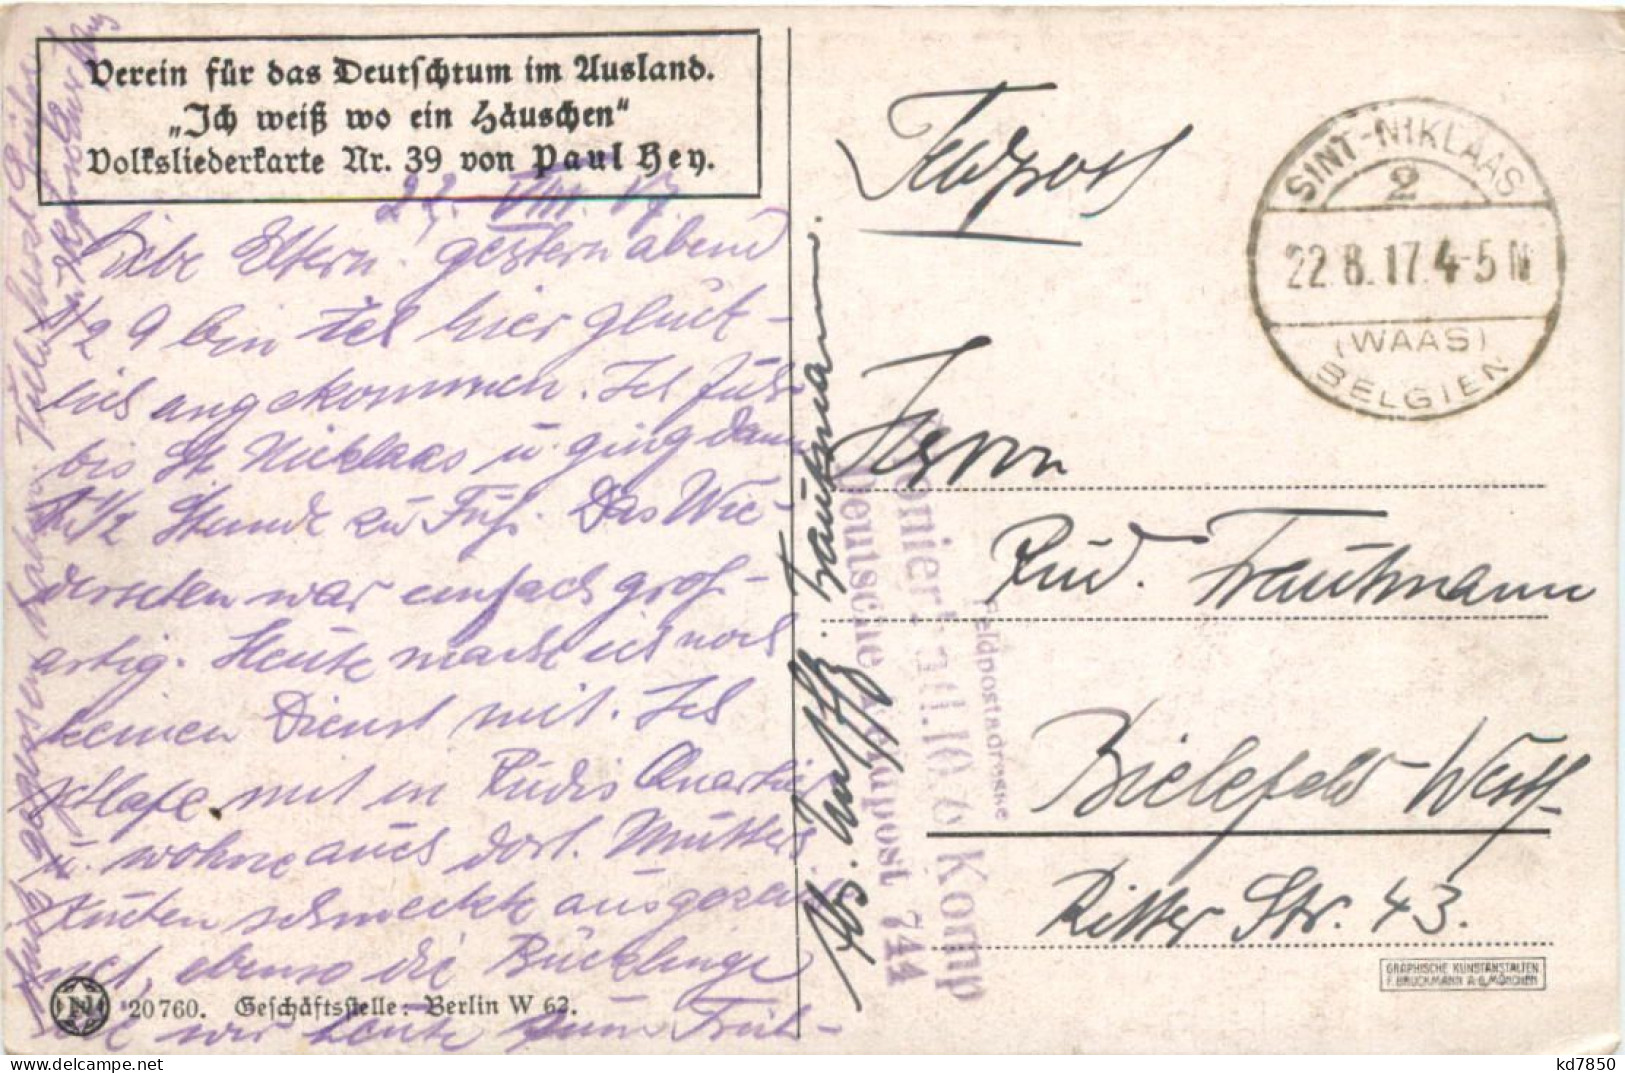 Verein für das Deutschtum im Ausland.
„Ich weiß wo ein Häuschen“
Volksliederkarte Nr. 39 von Paul Hey.
22. VIII. 17
Liebe Eltern. gestern abend
1/2 9 bin ich hier glück-
lich angekommen. Ich fuhr
bis St Nicklaas u ging dann
1 1/2 Stunde zu Fuß. Das Wie-
dersehen war einfach groß-
artig. Heute mache ich noch
keinen Dienst mit. Ich
schlafe mit in Rudis Quartier
u. wohne auch dort. Mutters
Kuchen schmeckte ausgezeich-
net, ebenso die Bücklinge
die wir heute zum Früh-
stück gegessen haben. Viele herzl. Grüße
20760. Geschäftsstelle: Berlin W 62.
Feldpost
SINT-NIKLAAS
2
22.8.17.4-5 N
(WAAS)
BELGIEN
Herrn
Rud. Trautmann
Bielefeld Westf.
Ritter Str. 43.
Abs. Trautmann.
Feldpostadresse
Komp
Deutsche Feldpost 744
GRAPHISCHE KUNSTANSTALTEN
F. BRUCKMANN A.G. MÜNCHEN
kd7850